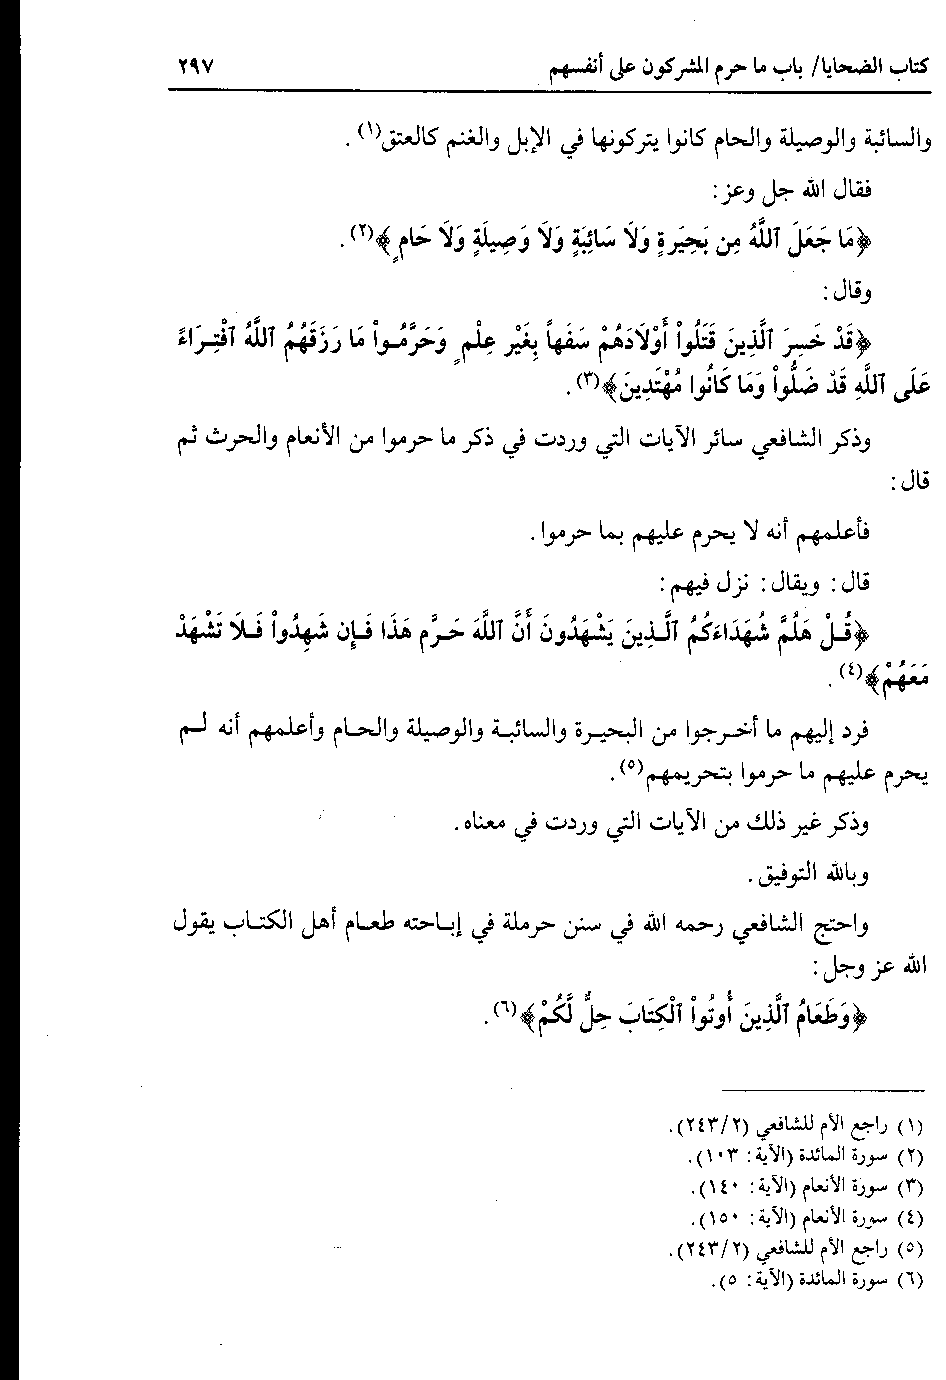 كتاب الضحايا/ باب ما حرم المشركون على أنفسهم ٢٩٧
والسائبة والوصيلة والحام كانوا يتركونها في الإبل والغنم كالعتق(١).
فقال الله جل وعز:
﴿مَا جَعَلَ ٱللَّهُ مِن بَحِيَرةٍ وَلَا سَائِبَةٍ وَلَا وَصِيلَةٍ وَلَا حَامٍ﴾(٢).
وقال:
﴿قَدْ خَسِرَ ٱلَّذِينَ قَتَلُواْ أَوْلَادَهُمْ سَفَهاً بِغَيْرِ عِلْمٍ وَحَرَّمُـواْ مَا رَزَقَهُمُ ٱللَّهُ ٱفْتِـرَاءً
عَلَى ٱللَّهِ قَدْ ضَلُّواْ وَمَا كَانُوا مُهْتَدِينَ﴾(٣).
وذكر الشافعي سائر الآيات التي وردت في ذكر ما حرموا من الأنعام والحرث ثم
قال:
فأعلمهم أنه لا يحرم عليهم بما حرموا.
قال: ويقال: نزل فيهم:
﴿قُـلْ هَلُمَّ شُهَدَاءَكُمُ ٱلَّـذِينَ يَشْهَدُونَ أَنَّ ٱللَّهَ حَـرَّم هَذَا فَـإِن شَهِدُواْ فَـلَا تَشْهَدْ
مَعَهُمْ﴾(٤).
فرد إليهم ما أخـرجوا من البحيـرة والسائبـة والوصيلة والحـام وأعلمهم أنه لـم
يحرم عليهم ما حرموا بتحريمهم(٥).
وذكر غير ذلك من الآيات التي وردت في معناه.
وبالله التوفيق.
واحتج الشافعي رحمه الله في سنن حرملة في إبـاحته طعـام أهل الكتـاب يقول
الله عز وجل:
﴿وَطَعَامُ ٱلَّذِينَ أُوتُواْ ٱلْكِتَابَ حِلٌّ لَّكُمْ﴾(٦).
(١) راجع الأم للشافعي (٢٤٣/٢).
(٢) سورة المائدة (الآية: ١٠٣).
(٣) سورة الأنعام (الآية: ١٤٠).
(٤) سورة الأنعام (الآية: ١٥٠).
(٥) راجع الأم للشافعي (٢٤٣/٢).
(٦) سورة المائدة (الآية: ٥).